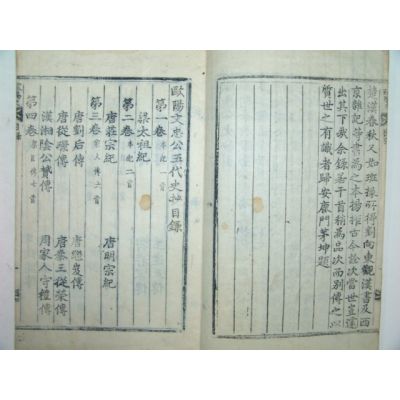 楚漢春秋又如班掾所得劉向東觀漢書及西
京雜記等書為之本揚摧古今詮次當世豈遽
出其下哉余錄若干首稍為品次而別傳之以
質世之有識者歸安鹿門茅坤題
歐陽文忠公五代史抄目錄
第一卷 本紀一首
梁太祖紀
第二卷 本紀二首
唐莊宗紀 唐明宗紀
第三卷 家人傳六首
唐劉后傳 唐繼岌傳
唐從璟傳 唐秦王從榮傳
漢湘陰公贇傳 周家人守禮傳
第四卷 臣傳七首